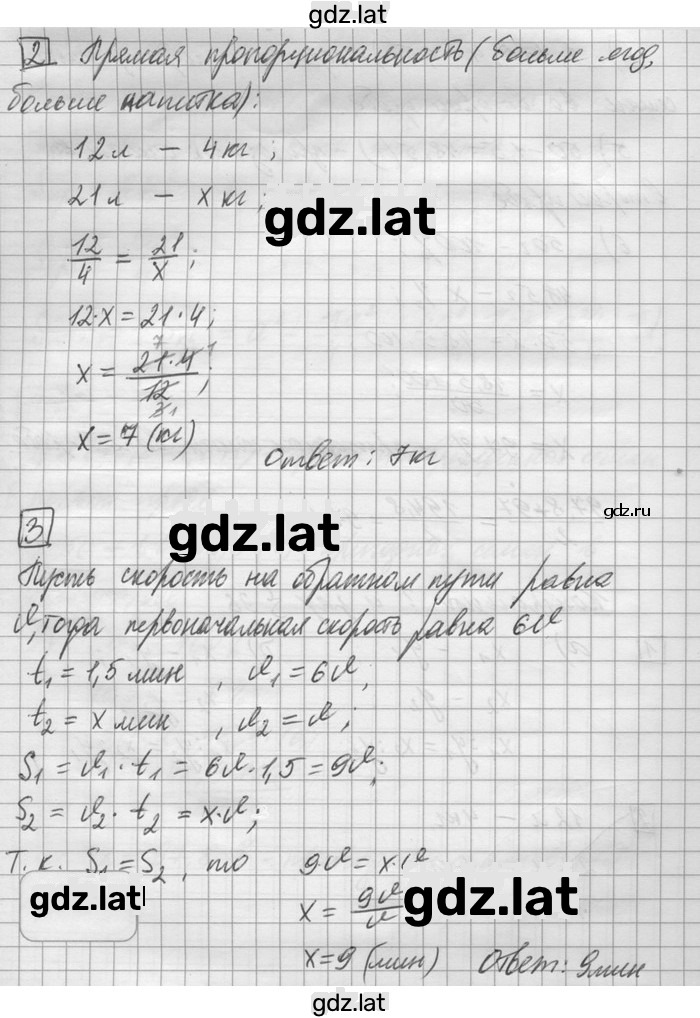 gdz.lat
2 Прямая пропорциональность (больше ягод,
больше напитка):
12 л – 4 кг ;
21 л – x кг ;
gdz.lat
12/4 = 21/x ;
12·x = 21·4;
x = 21·4/12 ; 7 1 3 1
x = 7 (кг)
Ответ: 7 кг
gdz.ru
3
gdz.lat
Пусть скорость на обратном пути равна
v, тогда первоначальная скорость равна 6v
t₁ = 1,5 мин , v₁ = 6v ;
t₂ = x мин , v₂ = v ;
S₁ = v₁ · t₁ = 6v · 1,5 = 9v ;
S₂ = v₂ · t₂ = x·v ;
Т. к. S₁ = S₂ , то 9v = x·v
gdz.lat
x = 9v/v
gdz.lat
x = 9 (мин) Ответ: 9 мин
gdz.lat